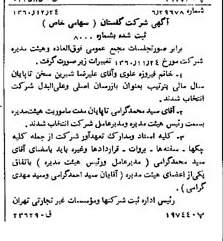 شماره ۶۲۹۹۷۸ ۱۳۶۰/۱۲/۲۴
آگهی شرکت گلستان ( سهامی خاص )
ثبت شده بشماره ۸۰۰۰
برابر صورتجلسات مجمع عمومی فوق‌العاده وهیئت مدیره
شرکت مورخ ۱۳۶۰/۱۲/۴ تغییرات زیر صورت گرفت.
۱ـ خانم فیروزه علوی وآقای علیرضا شیرین سخن تاپایان
سال مالی بترتیب بعنوان بازرسان اصلی وعلی‌البدل شرکت
انتخاب شدند.
۲ـ آقای سید محمدگرامی تاپایان مدت ماموریت هیئت‌مدیره
بسمت رئیس هیئت مدیره ومدیرعامل شرکت انتخاب شدند.
۳ـ کلیه اسناد ومدارک تعهدآور شرکت از جمله کلیه
چکها ـ سفته‌ها ـ بروات ـ قراردادها وغیره باید بامضای آقای
سید محمدگرامی ( مدیرعامل ورئیس هیئت مدیره ) باتفاق
یکی‌از اعضای هیئت مدیره ( آقایان سید احمدگرامی وسید مهدی
گرامی ) .
رئیس اداره ثبت شرکتها ومؤسسات غیر تجارتی تهران
۱۹۷۴۴۰پ ف-۲۳۶۲۹۰